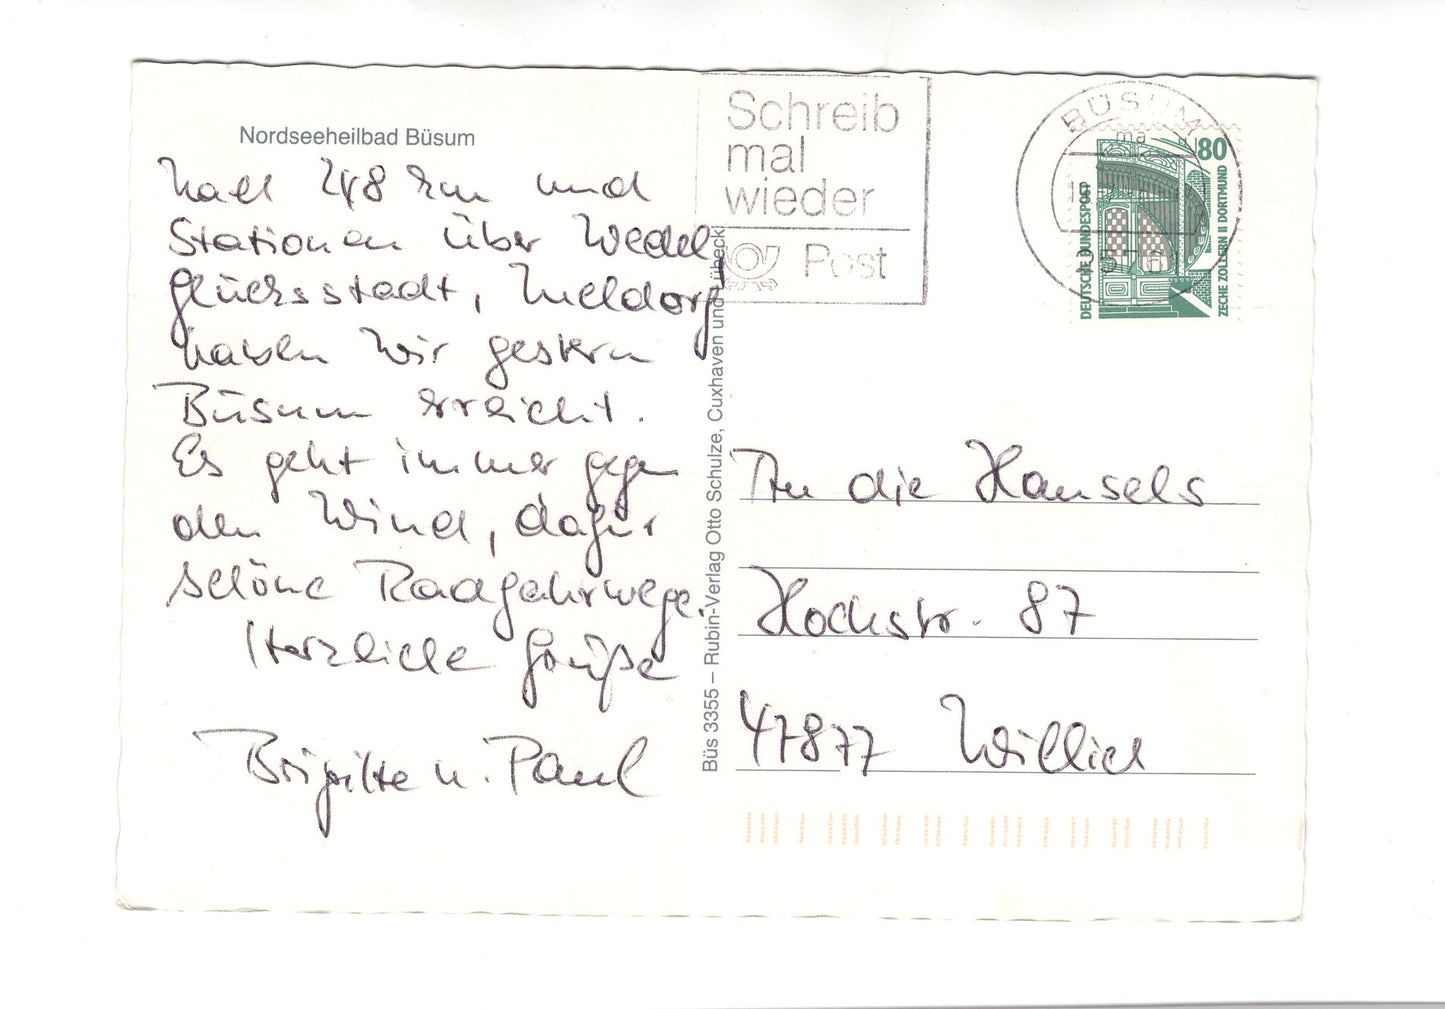 Nordseeheilbad Büsum
nach 248 km und
Stationen über Wedel,
Glücksstadt, Meldorf
haben wir gestern
Büsum erreicht.
Es geht immer gegen
den Wind, dafür
schöne Radfahrwege.
Herzliche Grüße
Brigitte u. Paul
Büs 3355 – Rubin-Verlag Otto Schulze, Cuxhaven und Lübeck
Schreib
mal
wieder
Post
BÜSUM
80
DEUTSCHE BUNDESPOST
ZECHE ZOLLERN II DORTMUND
An die Hansels
Hochstr. 87
47877 Willich